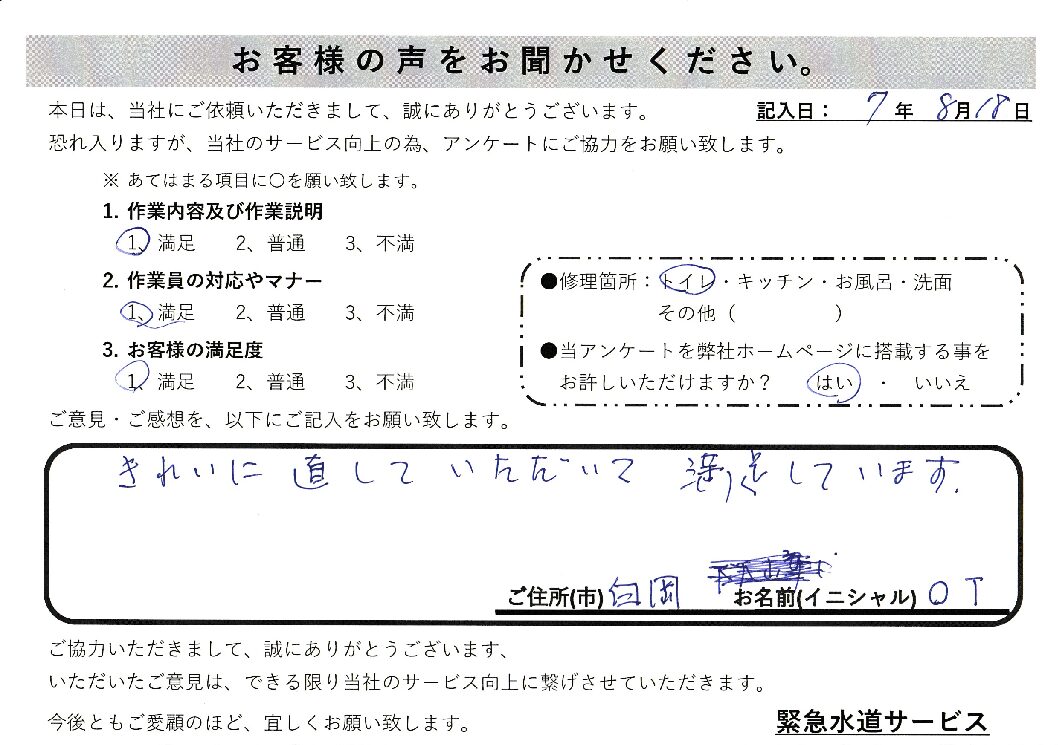 お客様の声をお聞かせください。
本日は、当社にご依頼いただきまして、誠にありがとうございます。 記入日： 7年 8月18日
恐れ入りますが、当社のサービス向上の為、アンケートにご協力をお願い致します。
※ あてはまる項目に〇を願い致します。
1. 作業内容及び作業説明
1、満足 2、普通 3、不満
2. 作業員の対応やマナー
1、満足 2、普通 3、不満
3. お客様の満足度
1、満足 2、普通 3、不満
●修理箇所：トイレ・キッチン・お風呂・洗面
その他（ ）
●当アンケートを弊社ホームページに搭載する事を
お許しいただけますか？ はい ・ いいえ
ご意見・ご感想を、以下にご記入をお願い致します。
きれいに直していただいて 満足しています.
ご住所(市) 白岡 お名前(イニシャル) O T
ご協力いただきまして、誠にありがとうございます、
いただいたご意見は、できる限り当社のサービス向上に繋げさせていただきます。
今後ともご愛顧のほど、宜しくお願い致します。
緊急水道サービス